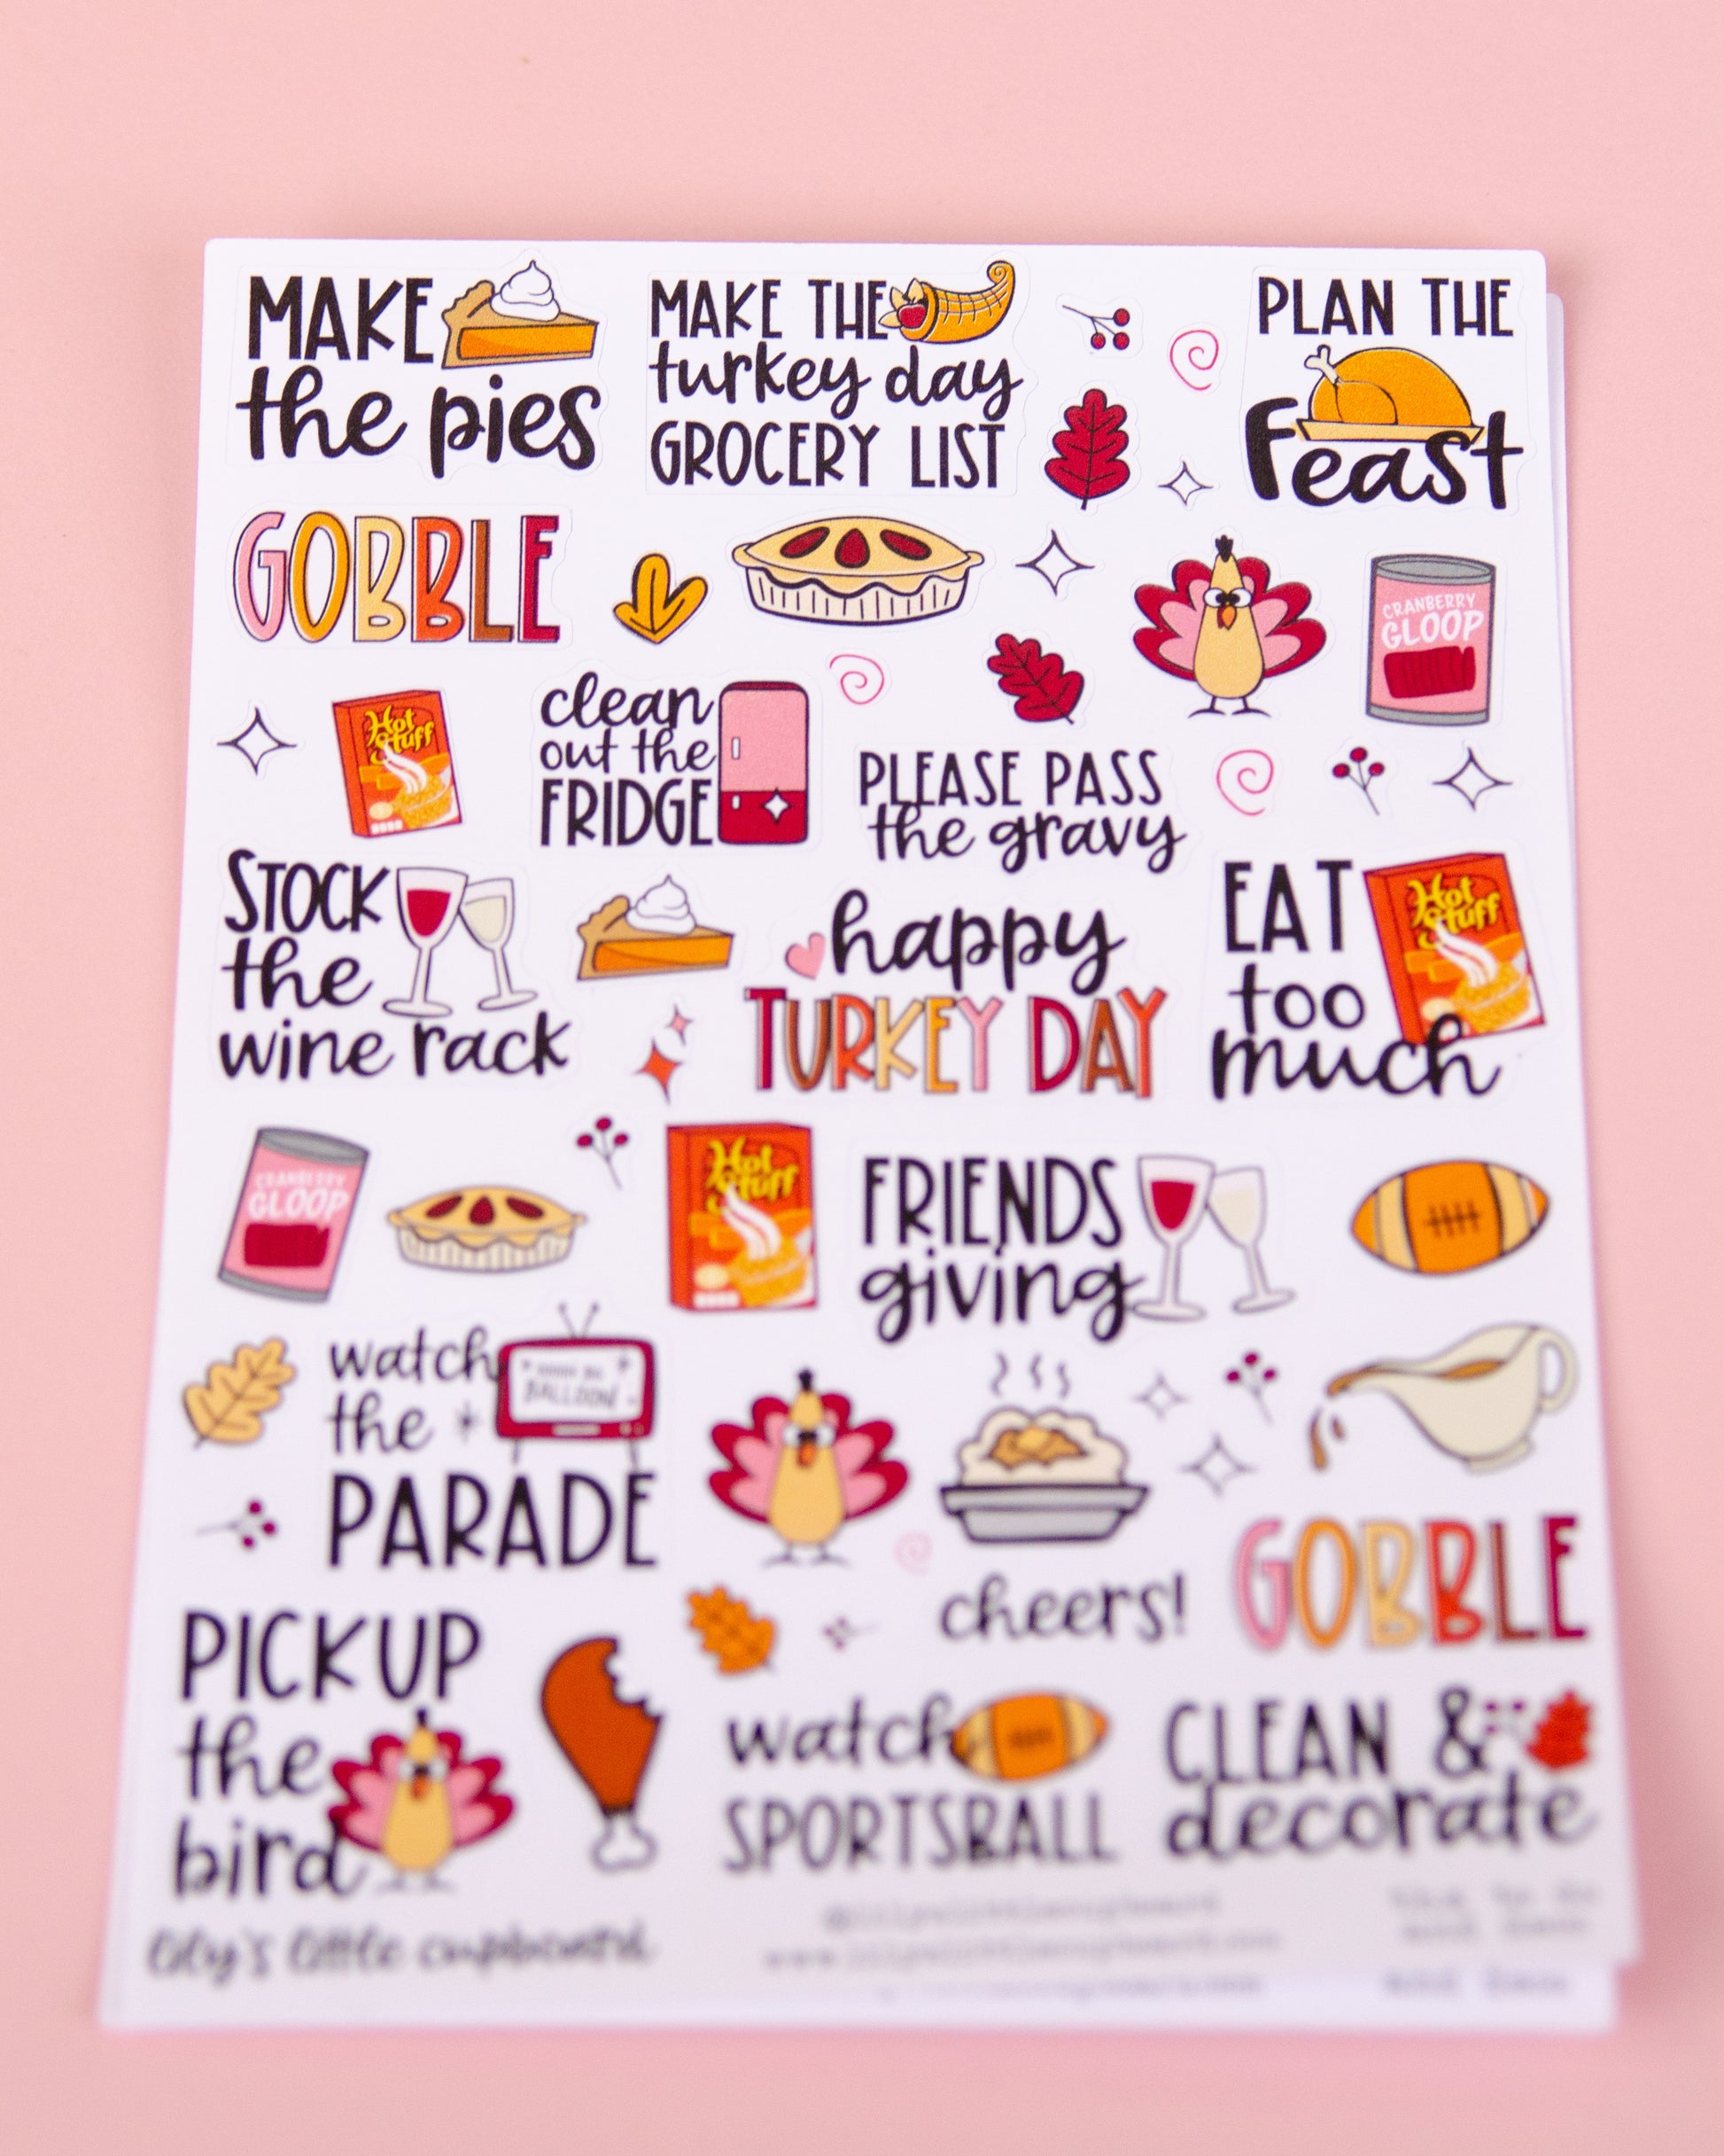 MAKE
the pies
MAKE THE
turkey day
GROCERY LIST
PLAN THE
Feast
GOBBLE
CRANBERRY
GLOOP
Hot
Stuff
clean
out the
FRIDGE
PLEASE PASS
the gravy
STOCK
the
wine rack
happy
TURKEY DAY
EAT
too
much
Hot
Stuff
CRANBERRY
GLOOP
Hot
Stuff
FRIENDS
giving
watch
the
PARADE
BALLOON
cheers!
GOBBLE
PICK UP
the
bird
watch
SPORTSBALL
CLEAN &
decorate
lily's little cupboard
@lilyslittlecupboard
www.lilyslittlecupboard.com